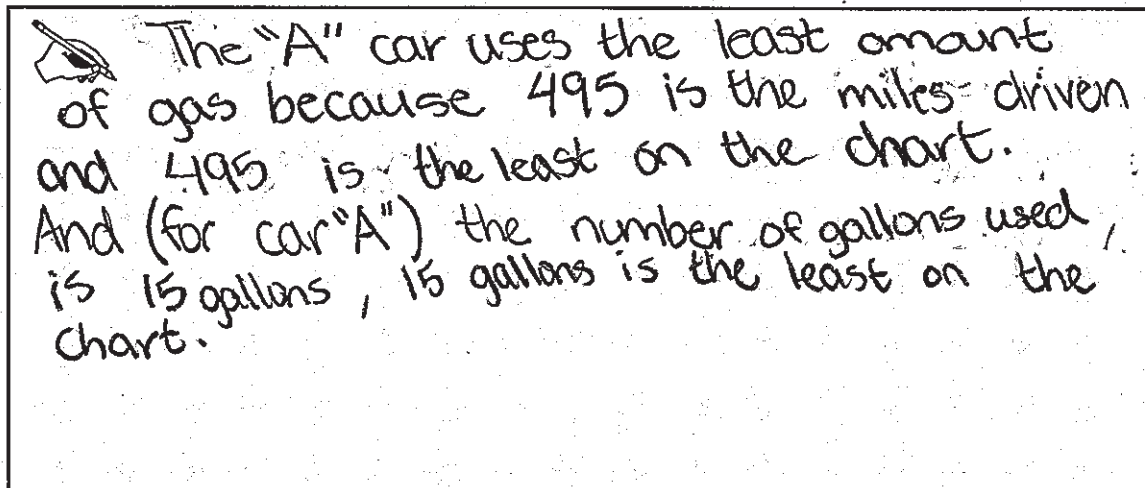 The "A" car uses the least amount
of gas because 495 is the miles driven
and 495 is the least on the chart.
And (for car "A") the number of gallons used,
is 15 gallons, 15 gallons is the least on the
chart.